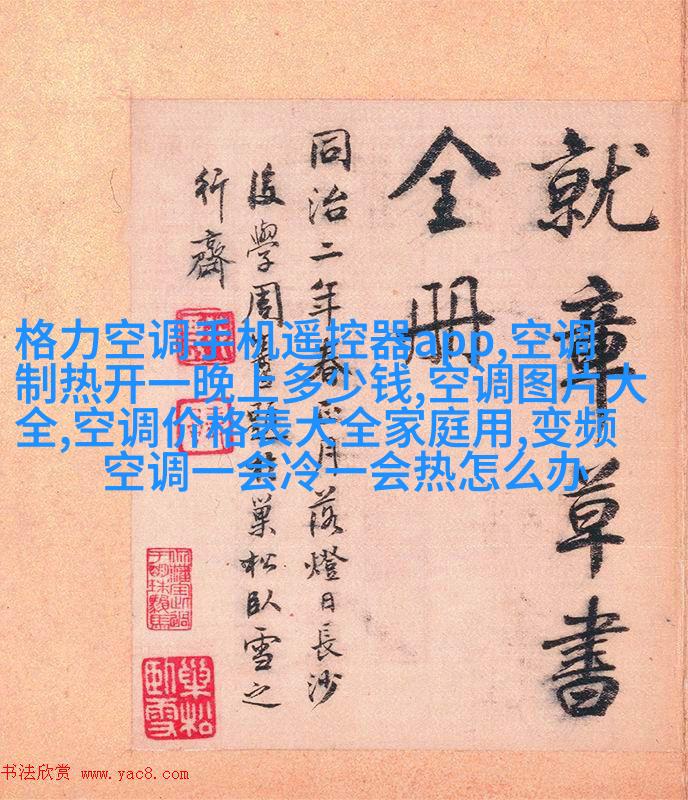 就章草書
全册
同治二年春正月落燈日長沙
後學周壽題於巢松臥雪之
行齋
格力空调手机遥控器app,空调
制热开一晚上多少钱,空调图片大
全,空调价格表大全家庭用,变频
空调一会冷一会热怎么办
巢松
臥雪
书法欣赏 www.yac8.com